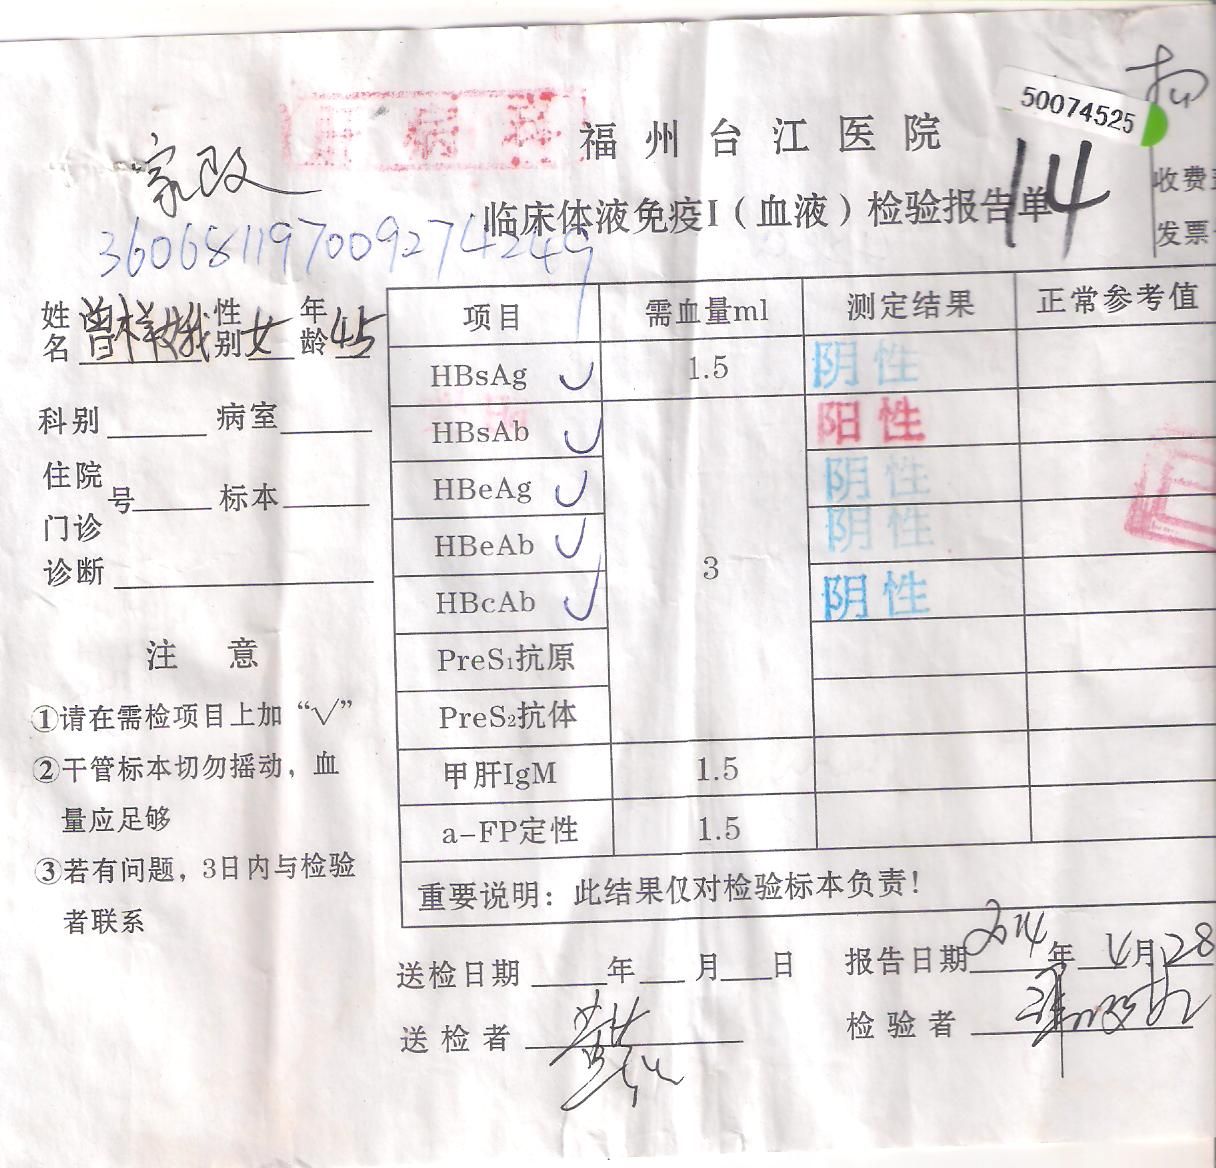 肝病科
扣
50074525
福州台江医院
14
家政
临床体液免疫I（血液）检验报告单
收费
发票
360681197009274249
姓名 曾样娥 性别 女 年龄 45
科别 病室
住院号 标本
门诊
诊断
项目 需血量ml 测定结果 正常参考值
HBsAg √ 1.5 阴性
HBsAb √ 阳性
HBeAg √ 阴性
HBeAb √ 3 阴性
HBcAb √ 阴性
PreS₁抗原
PreS₂抗体
甲肝IgM 1.5
a-FP定性 1.5
重要说明：此结果仅对检验标本负责！
注 意
①请在需检项目上加“√”
②干管标本切勿摇动，血
量应足够
③若有问题，3日内与检验
者联系
送检日期 年 月 日
报告日期 2014年 4月28
送检者
检验者